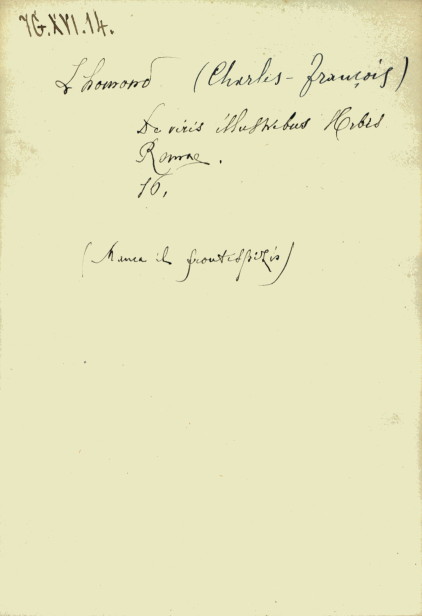 7G.XVI.14.
Lhomond (Charles-François)
De viris illustribus Urbis
Romae.
16.
(Manca il frontespizio)